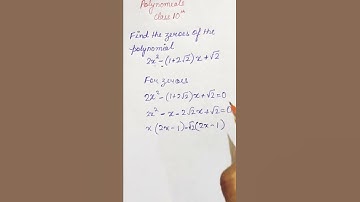 Polynomials
Class 10th
Find the zeroes of the
polynomial
2x² - (1+2√2)x + √2
For zeroes
2x² - (1+2√2)x + √2 = 0
2x² - x - 2√2x + √2 = 0
x(2x-1) - √2(2x-1)